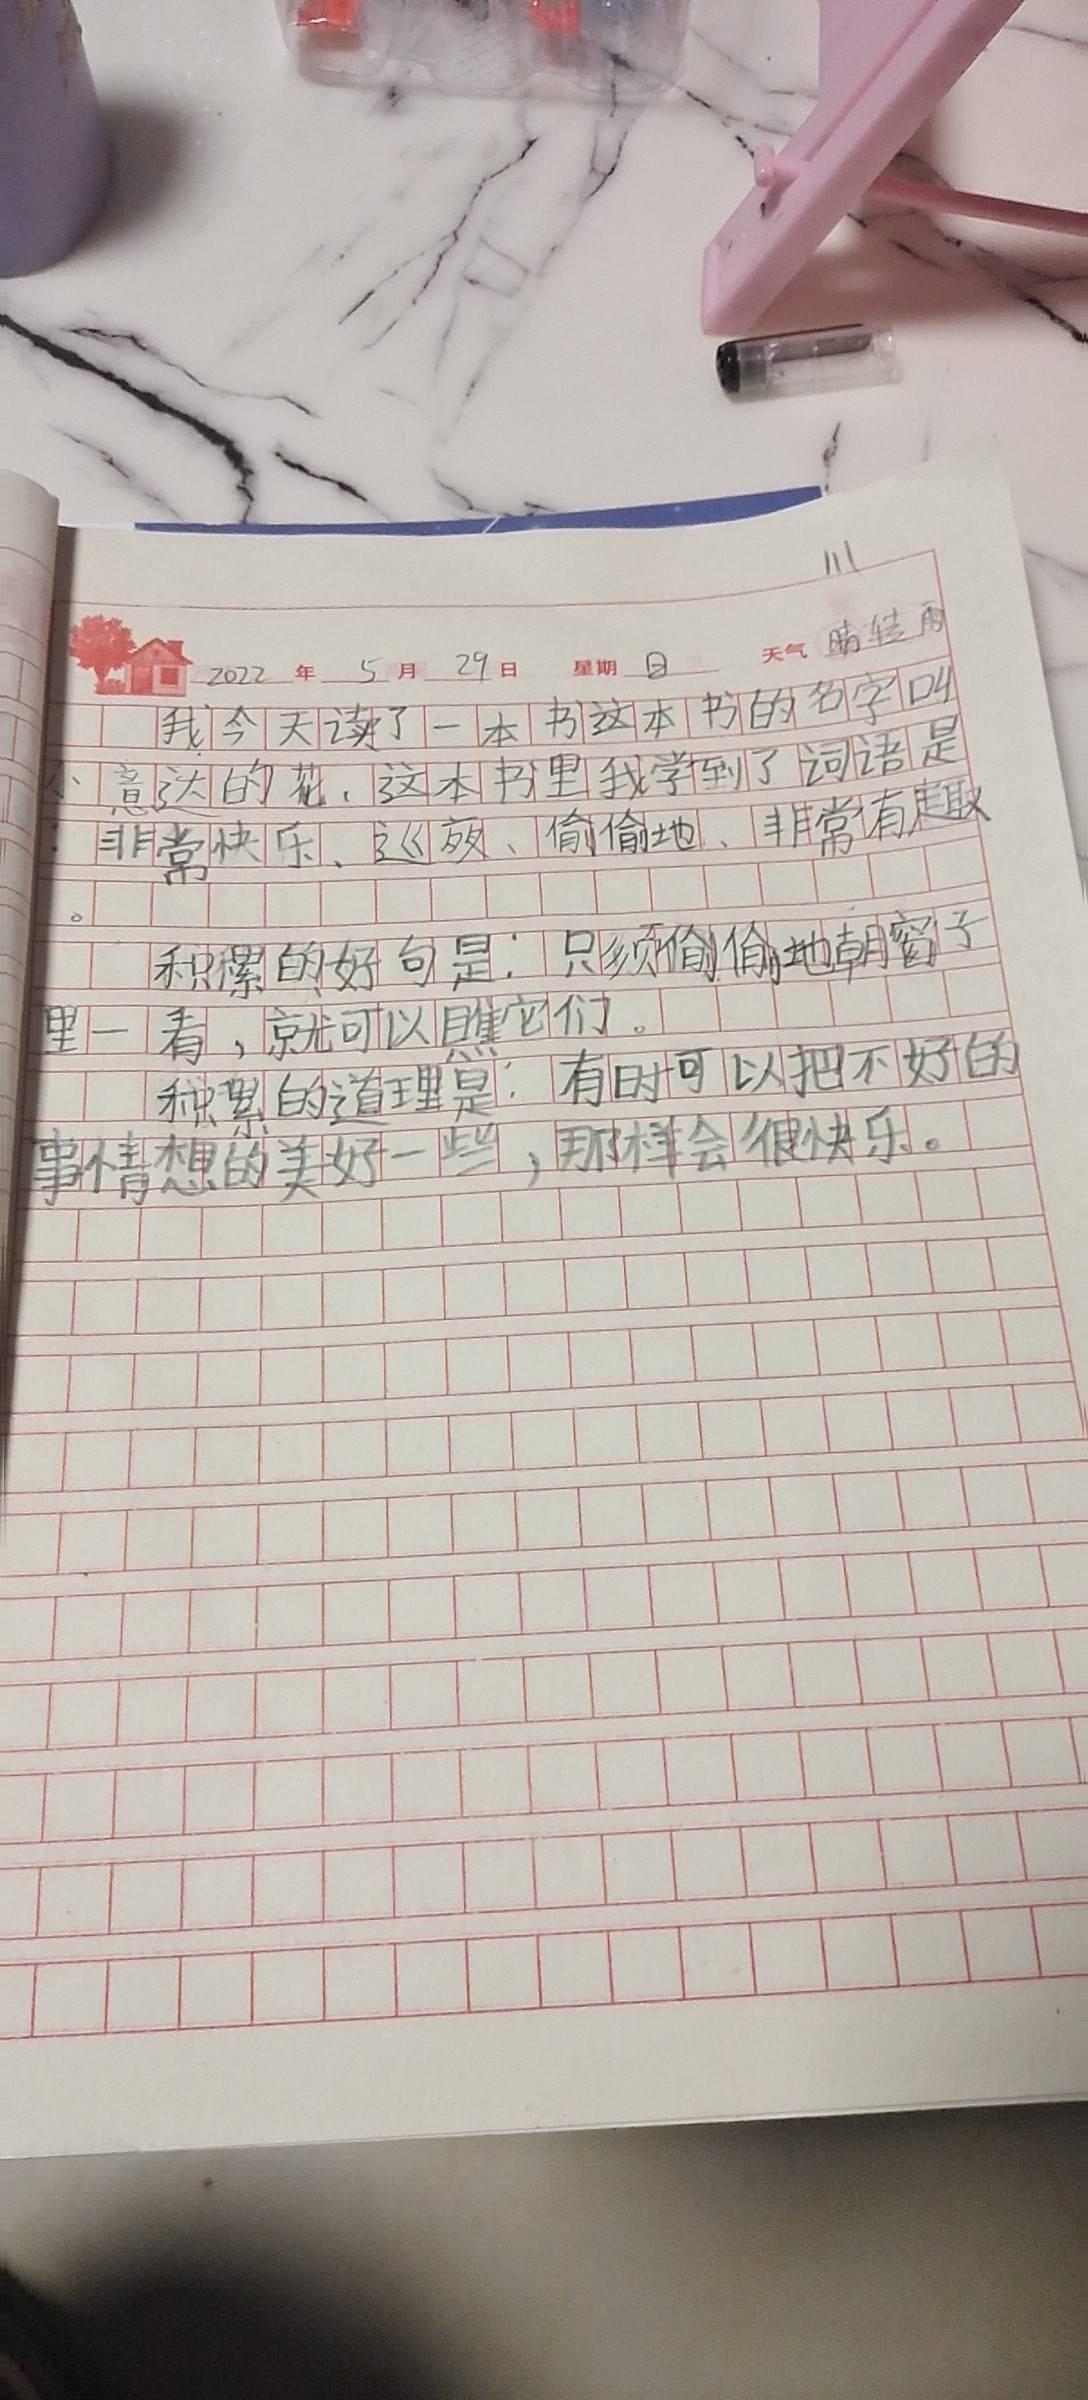 川
2022 年 5 月 29 日 星期 日 天气 晴转雨
我今天读了一本书这本书的名字叫
小意达的花、这本书里我学到了词语是
：非常快乐、巡夜、偷偷地、非常有趣
。
积累的好句是：只须偷偷地朝窗子
里一看，就可以瞧它们。
积累的道理是：有时可以把不好的
事情想的美好一些，那样会很快乐。